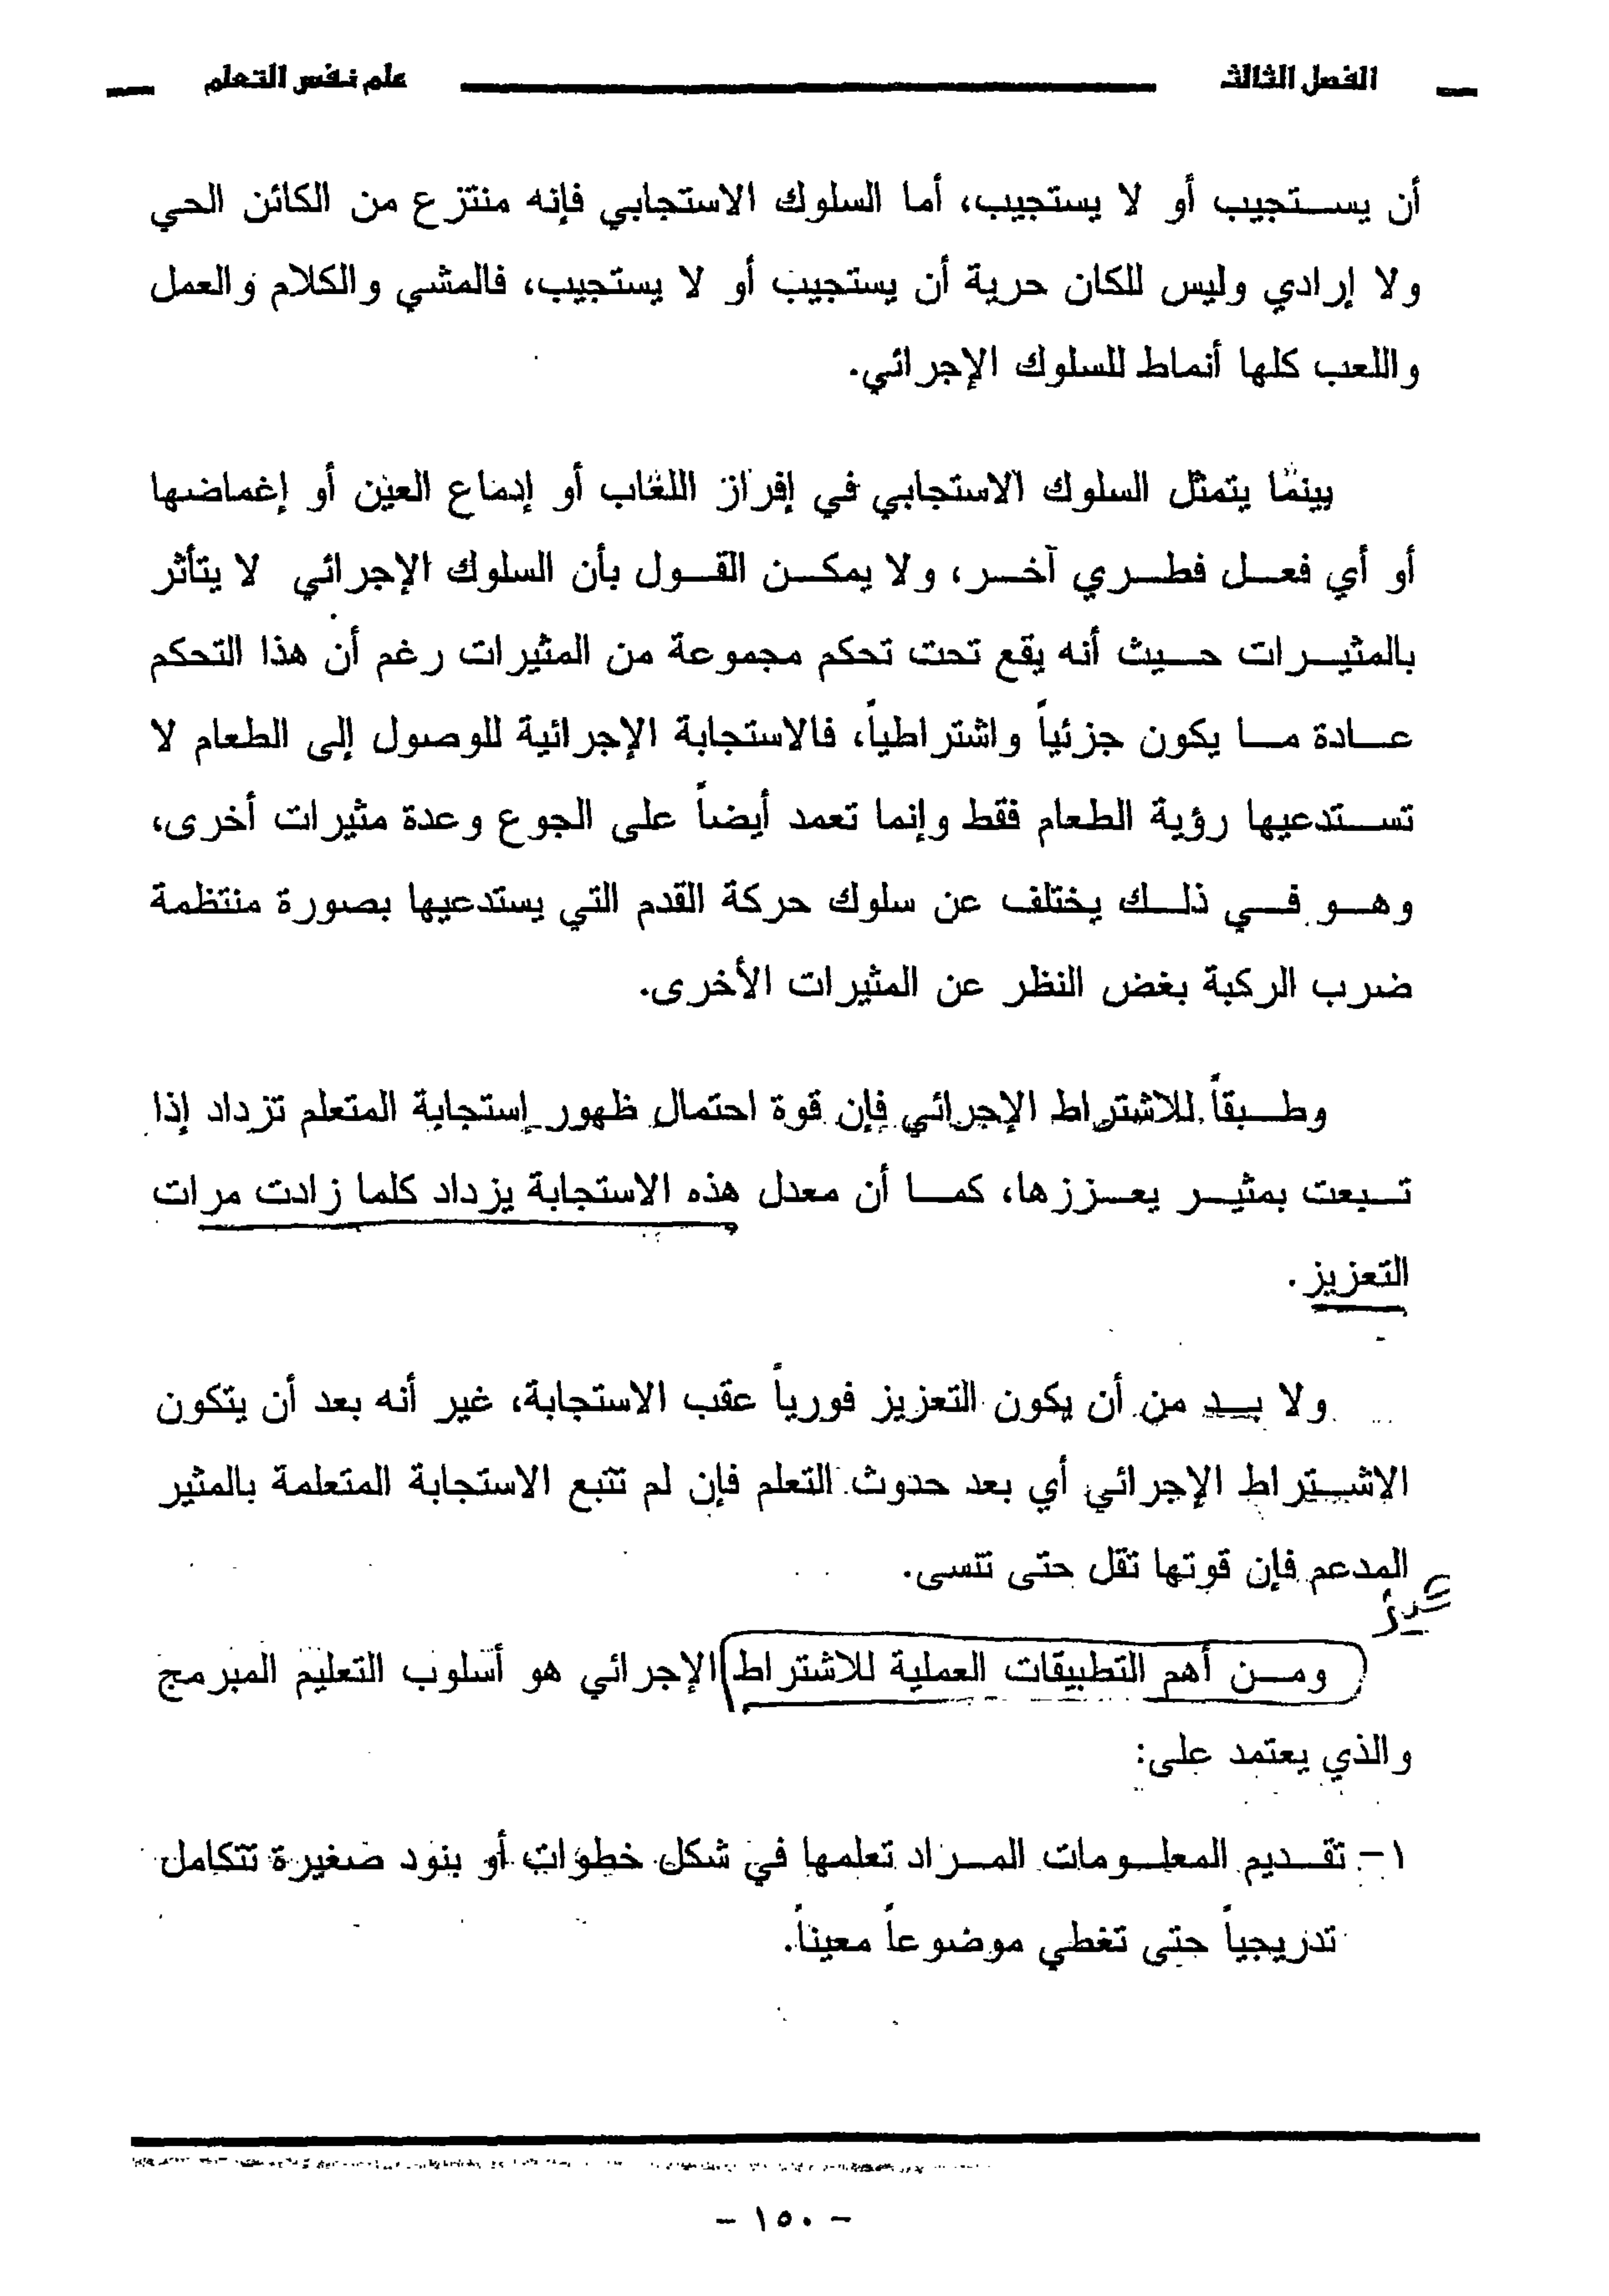 الفصل الثالث علم نفس التعلم
أن يستجيب أو لا يستجيب، أما السلوك الاستجابي فإنه منتزع من الكائن الحي
ولا إرادي وليس للكان حرية أن يستجيب أو لا يستجيب، فالمشي والكلام والعمل
واللعب كلها أنماط للسلوك الإجرائي.
بينما يتمثل السلوك الاستجابي في إفراز اللعاب أو إدماع العين أو إغماضها
أو أي فعل فطري آخر، ولا يمكن القول بأن السلوك الإجرائي لا يتأثر
بالمثيرات حيث أنه يقع تحت تحكم مجموعة من المثيرات رغم أن هذا التحكم
عادة ما يكون جزئياً واشتراطياً، فالاستجابة الإجرائية للوصول إلى الطعام لا
تستدعيها رؤية الطعام فقط وإنما تعمد أيضاً على الجوع وعدة مثيرات أخرى،
وهو في ذلك يختلف عن سلوك حركة القدم التي يستدعيها بصورة منتظمة
ضرب الركبة بغض النظر عن المثيرات الأخرى.
وطبقاً للاشتراط الإجرائي فإن قوة احتمال ظهور إستجابة المتعلم تزداد إذا
تبعت بمثير يعززها، كما أن معدل هذه الاستجابة يزداد كلما زادت مرات
التعزيز.
ولا بد من أن يكون التعزيز فورياً عقب الاستجابة، غير أنه بعد أن يتكون
الاشتراط الإجرائي أي بعد حدوث التعلم فإن لم تتبع الاستجابة المتعلمة بالمثير
المدعم فإن قوتها تقل حتى تنسى.
ومن أهم التطبيقات العملية للاشتراط الإجرائي هو أسلوب التعليم المبرمج
والذي يعتمد على:
١- تقديم المعلومات المراد تعلمها في شكل خطوات أو بنود صغيرة تتكامل
تدريجياً حتى تغطي موضوعاً معيناً.
- ١٥٠ -